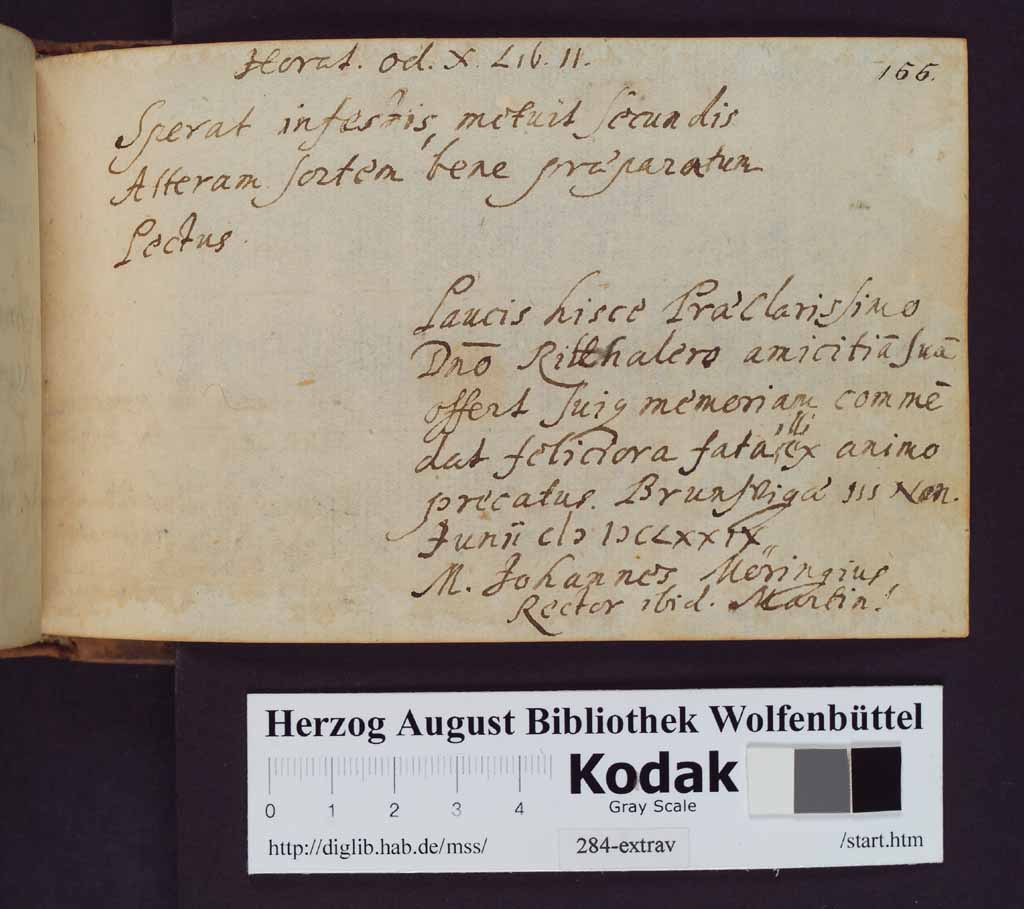 Horat. od. X. Lib. II.
166.
Sperat infestis, metuit secundis
Alteram sortem bene præparatum
Pectus.
Paucis hisce Præclarissimo
Dnō Ritthalero amicitiā suā
offert suiq memoriam commē
dat feliciora fata illi ex animo
precatus. Brunsvigæ III Non.
Junii CIↃ IↃCLXXIX
M. Johannes Möringius,
Rector ibid. Martin.
Herzog August Bibliothek Wolfenbüttel
0 1 2 3 4
Kodak
Gray Scale
http://diglib.hab.de/mss/ 284-extrav /start.htm